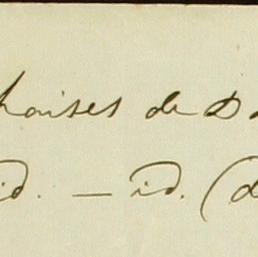 haises de D
id. — id. (d